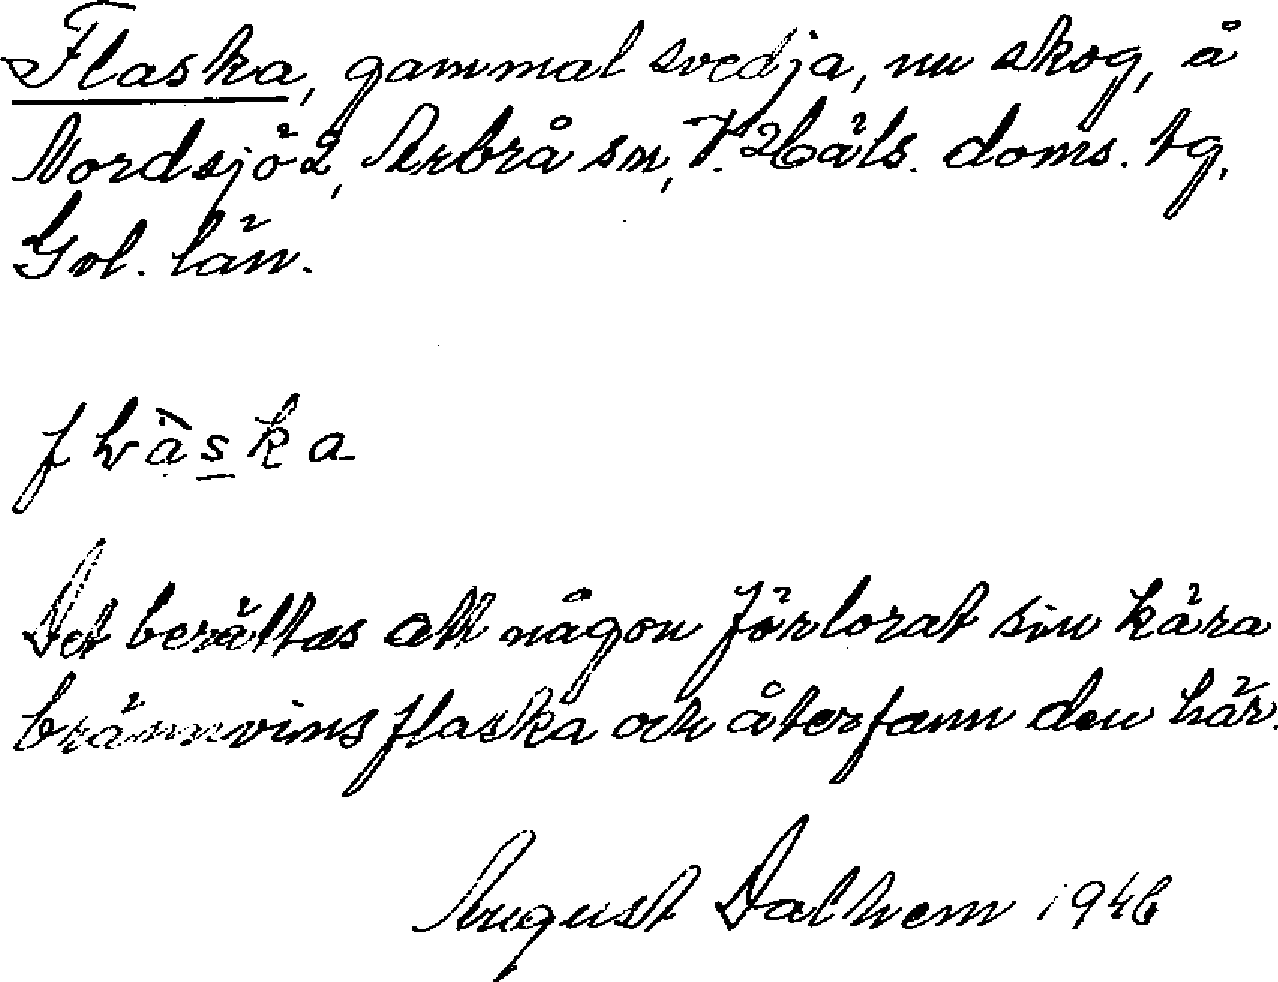 Flaska, gammal svedja, nu skog, å
Nordsjö 2, Arbrå sn, V. Häls. doms. tg,
Gvl. län.
Det berättas att någon förlorat sin kära
brännvinsflaska och återfann den här.
August Dalhem 1946